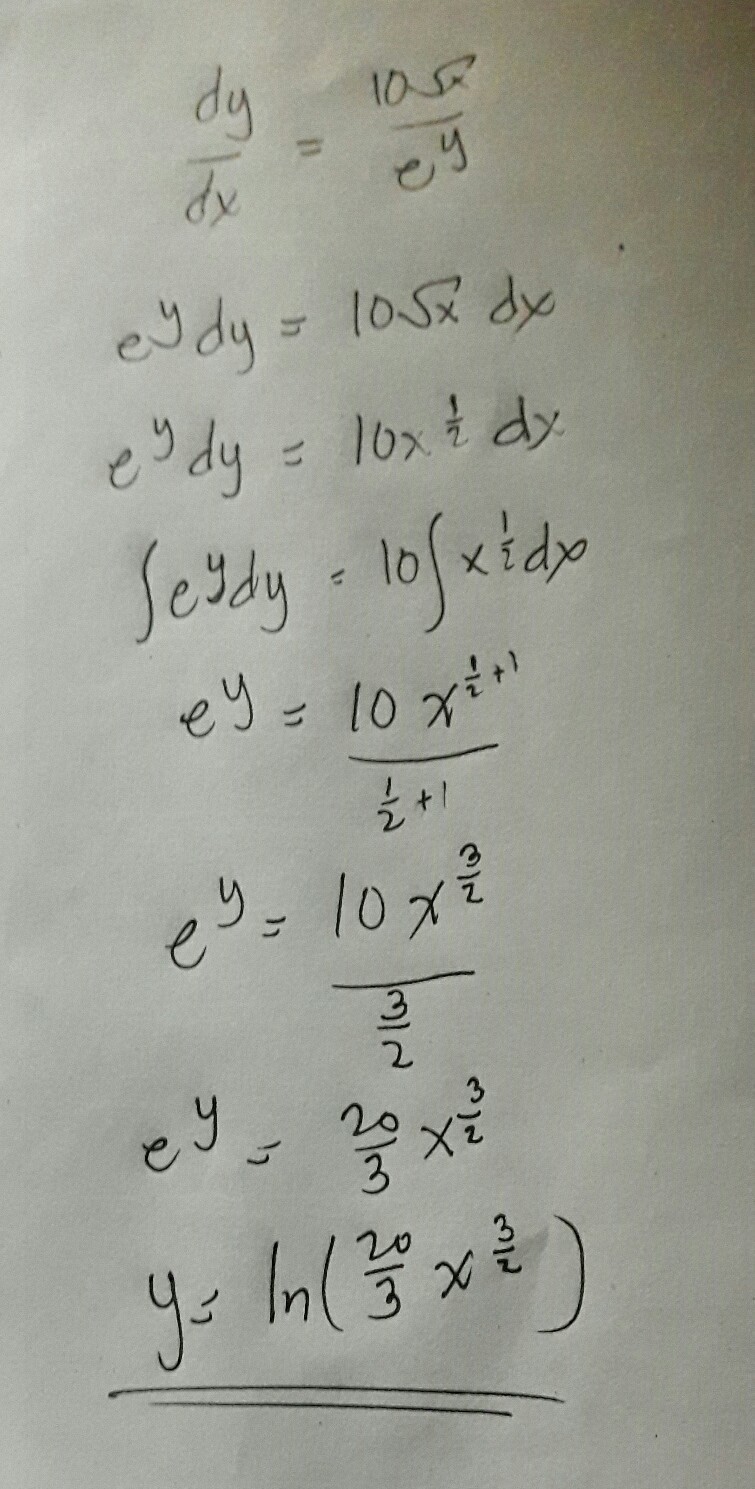 dy/dx = 10√x/e^y
e^y dy = 10√x dx
e^y dy = 10x^(1/2) dx
∫e^y dy = 10∫x^(1/2) dx
e^y = 10x^(1/2+1)/(1/2+1)
e^y = 10x^(3/2)/(3/2)
e^y = 20/3 x^(3/2)
y = ln(20/3 x^(3/2))